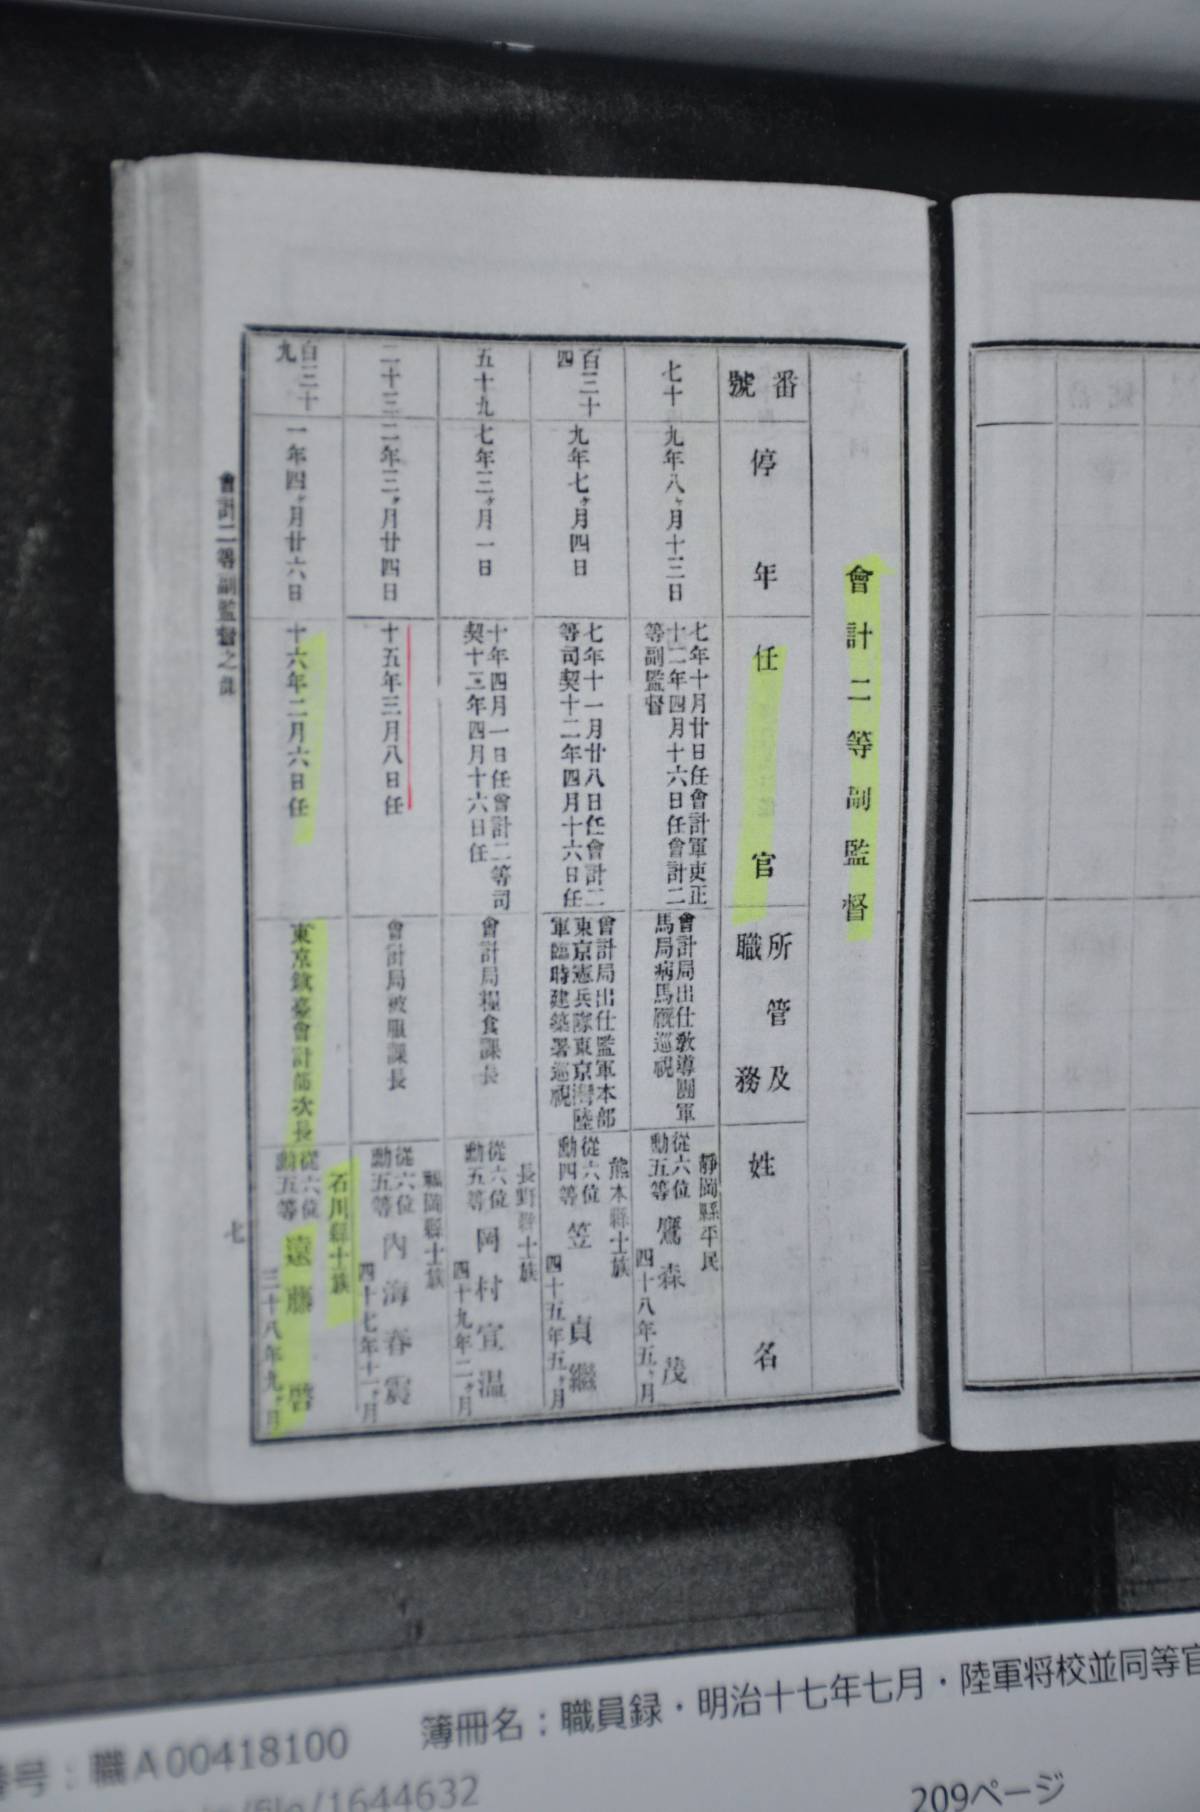 會計二等副監督
番號
停年
任官
所管及
職務
姓名
七十
九年八ヶ月十三日
七年十月廿日任會計軍吏正
十二年四月十六日任會計二
等副監督
會計局出仕敎導團軍
馬局病馬厩巡視
靜岡縣平民
從六位
勳五等
鷹森茂
四十八年五ヶ月
百三十
四
九年七ヶ月四日
七年十一月廿八日任會計二
等司契十二年四月十六日任
會計局出仕監軍本部
東京憲兵隊東京灣陸
軍臨時建築署巡視
熊本縣士族
從六位
勳四等
笠貞繼
四十五年五ヶ月
五十九
七年三ヶ月一日
十年四月一日任會計二等司
契十三年四月十六日任
會計局糧食課長
長野縣士族
從六位
勳五等
岡村宜温
四十九年二ヶ月
二十三
二年三ヶ月廿四日
十五年三月八日任
會計局被服課長
福岡縣士族
從六位
勳五等
內海春震
四十七年十一ヶ月
百三十
九
一年四ヶ月廿六日
十六年二月六日任
東京鎭臺會計部次長
石川縣士族
從六位
勳五等
遠藤
三十八年九ヶ月
會計二等副監督之部
七
番号：職A00418100 簿冊名：職員録・明治十七年七月・陸軍将校並同等官
file/1644632
209ページ